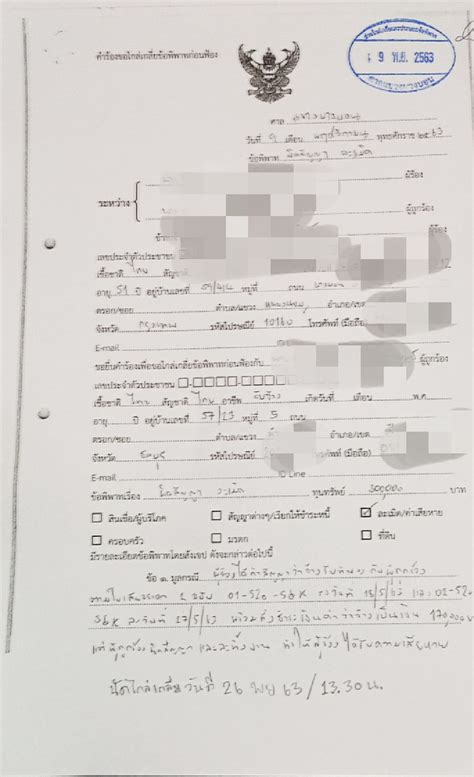 คำร้องขอไกล่เกลี่ยข้อพิพาทก่อนฟ้อง
9 พ.ย. 2563
ศาล แขวงบางบอน
วันที่ 9 เดือน พฤศจิกายน พุทธศักราช ๒๕ ๖3
ข้อพิพาท ผิดสัญญา ละเมิด
ผู้ร้อง
ระหว่าง
ผู้ถูกร้อง
ข้าพ ผู้ร้อง
เลขประจำตัวประชาชน
เชื้อชาติ ไทย สัญชาติ
อายุ 51 ปี อยู่บ้านเลขที่ หมู่ที่ ถนน
ตรอก/ซอย ตำบล/แขวง อำเภอ/เขต
จังหวัด กรุงเทพ รหัสไปรษณีย์ 10160 โทรศัพท์ (มือถือ)
E-mail
ขอยื่นคำร้องเพื่อขอไกล่เกลี่ยข้อพิพาทก่อนฟ้องกับ ผู้ถูกร้อง
เลขประจำตัวประชาชน
เชื้อชาติ ไทย สัญชาติ ไทย อาชีพ รับจ้าง เกิดวันที่ เดือน พ.ศ.
อายุ ปี อยู่บ้านเลขที่ 57/23 หมู่ที่ 5 ถนน
ตรอก/ซอย ตำบล/แขวง อำเภอ/เขต
จังหวัด รหัสไปรษณีย์ โทรศัพท์ (มือถือ)
E-mail ID Line
ข้อพิพาทเรื่อง ผิดสัญญา ละเมิด ทุนทรัพย์ 300,000 บาท
สินเชื่อ/ผู้บริโภค สัญญาต่างๆ/เรียกให้ชำระหนี้ ละเมิด/ค่าเสียหาย
ครอบครัว มรดก ที่ดิน
มีรายละเอียดข้อพิพาทโดยสังเขป ดังจะกล่าวต่อไปนี้
ข้อ ๑. มูลกรณี ผู้ร้องได้ทำสัญญาว่าจ้าง กับผู้ถูกร้อง
ตามใบเสนอราคา 2 ฉบับ 01-520-SBK ลงวันที่ 15/5/63 และ 01-520
SBK ลงวันที่ 27/5/63 เป็นเงิน 170,000 บ
แต่ผู้ถูกร้อง ผิดสัญญา และละทิ้งงาน ทำให้ผู้ร้อง ได้รับความเสียหาย
นัดไกล่เกลี่ย วันที่ 26 พย 63 / 13.30 น.